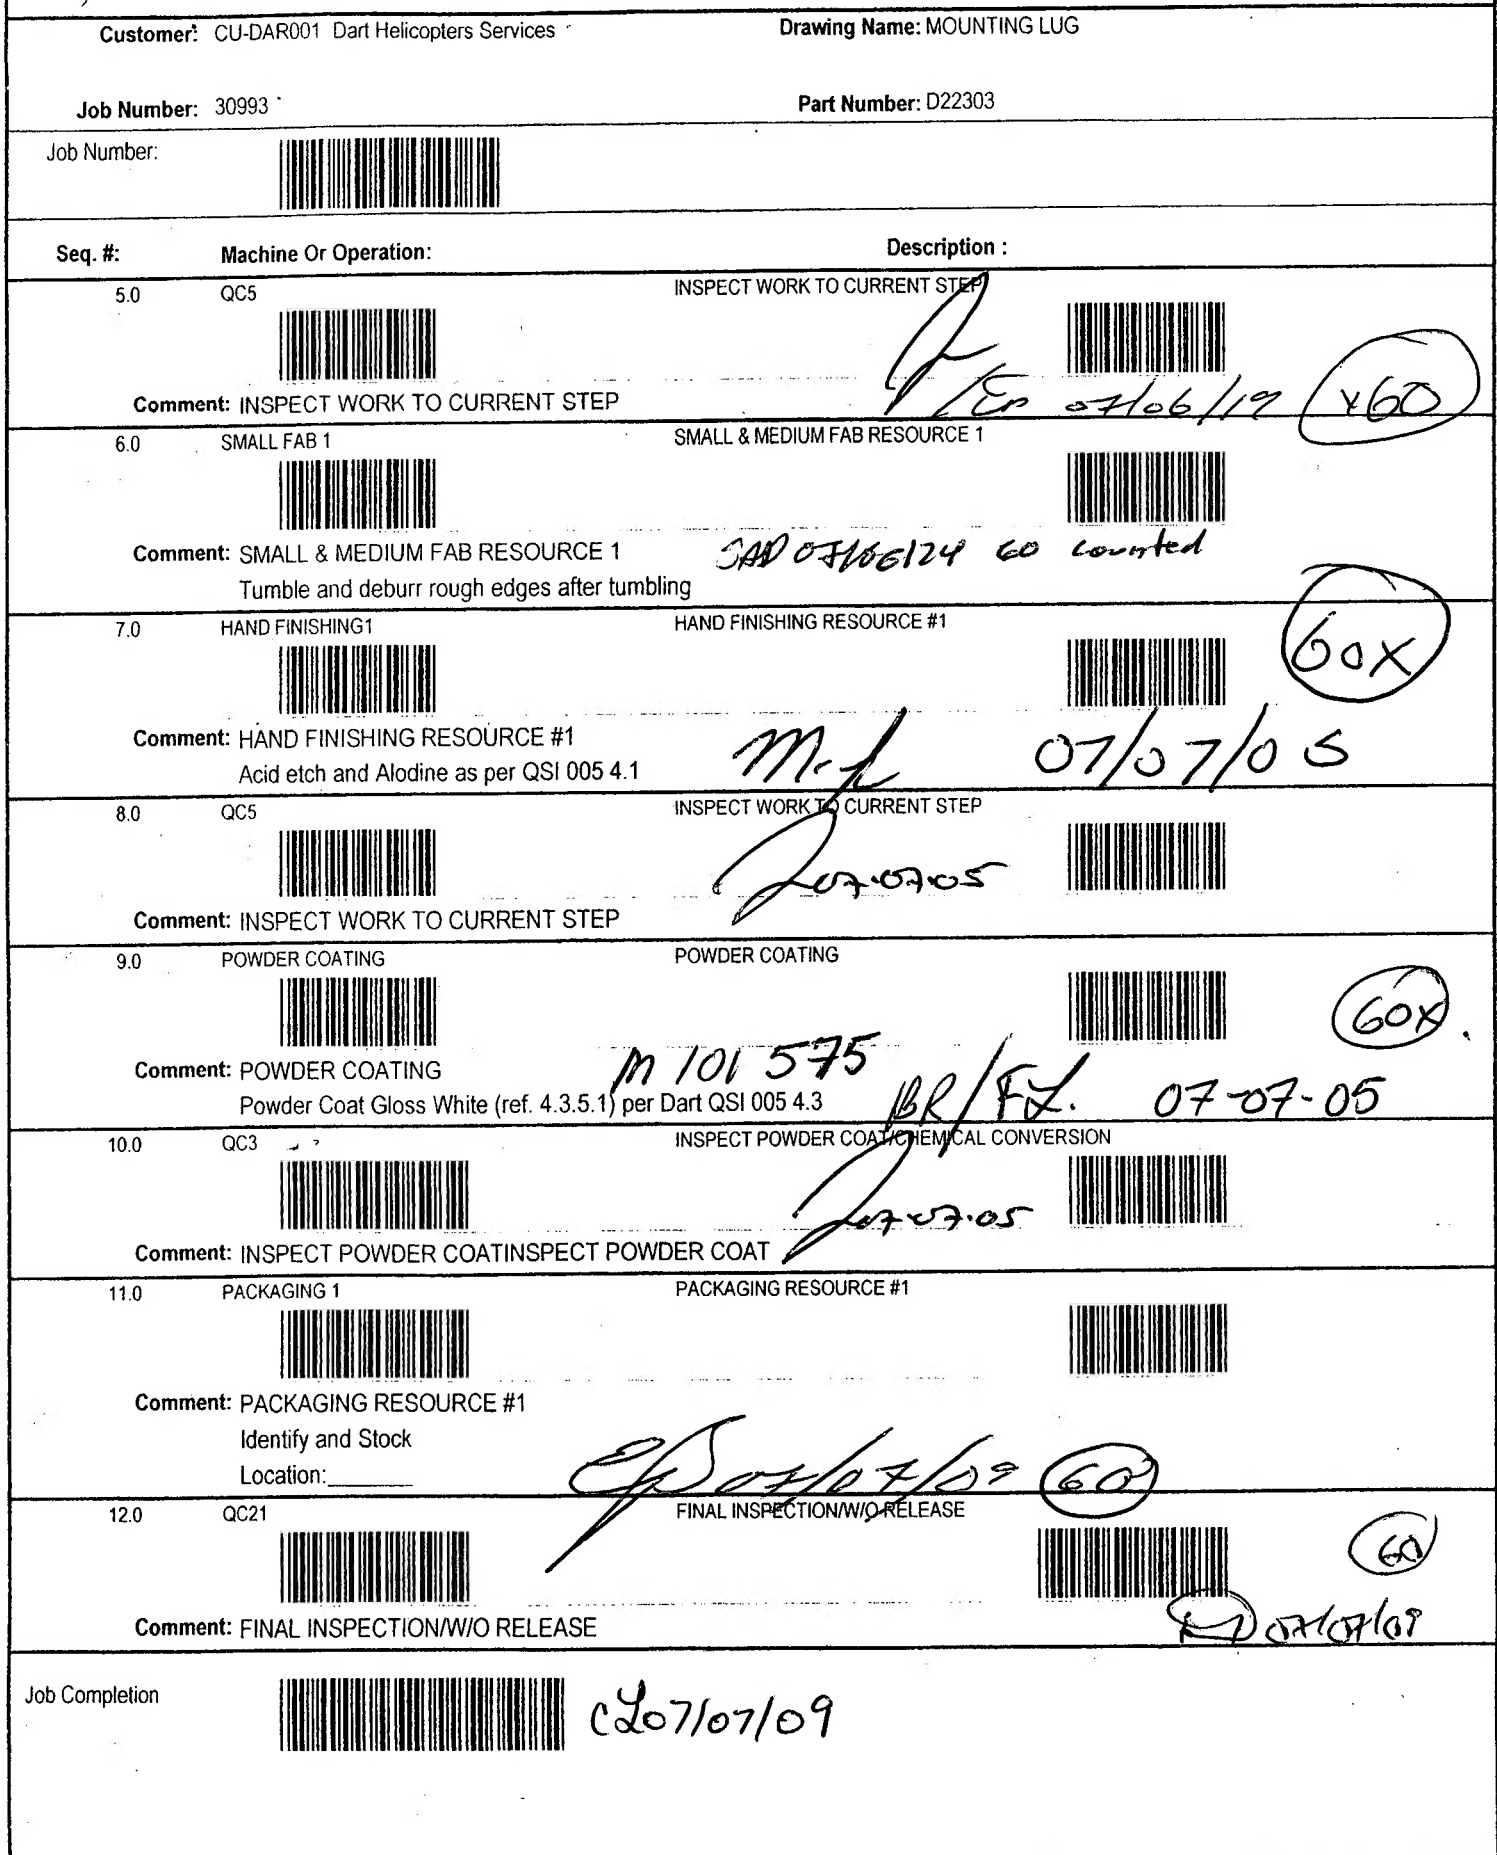 Customer: CU-DAR001 Dart Helicopters Services Drawing Name: MOUNTING LUG
Job Number: 30993 Part Number: D22303
Job Number:
Seq. #: Machine Or Operation: Description :
5.0 QC5 INSPECT WORK TO CURRENT STEP
07/06/19 x60
Comment: INSPECT WORK TO CURRENT STEP
6.0 SMALL FAB 1 SMALL & MEDIUM FAB RESOURCE 1
Comment: SMALL & MEDIUM FAB RESOURCE 1 SAD 07/06/24 60 counted
Tumble and deburr rough edges after tumbling
7.0 HAND FINISHING1 HAND FINISHING RESOURCE #1
60X
Comment: HAND FINISHING RESOURCE #1 07/07/05
Acid etch and Alodine as per QSI 005 4.1
8.0 QC5 INSPECT WORK TO CURRENT STEP
07.07.05
Comment: INSPECT WORK TO CURRENT STEP
9.0 POWDER COATING POWDER COATING
60X
Comment: POWDER COATING M 101 575
Powder Coat Gloss White (ref. 4.3.5.1) per Dart QSI 005 4.3 BR/FL. 07-07-05
10.0 QC3 INSPECT POWDER COAT/CHEMICAL CONVERSION
07.07.05
Comment: INSPECT POWDER COATINSPECT POWDER COAT
11.0 PACKAGING 1 PACKAGING RESOURCE #1
Comment: PACKAGING RESOURCE #1
Identify and Stock
Location:_______ 07/07/09 60
12.0 QC21 FINAL INSPECTION/W/O RELEASE
60
Comment: FINAL INSPECTION/W/O RELEASE 07/07/09
Job Completion CL 07/07/09